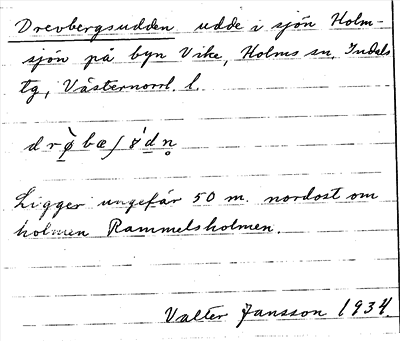 Drevbergsudden udde i sjön Holm-
sjön på byn Vike, Holms sn, Indals
tg, Västernorrl. l.
d r ø̀ b æ ʃ ɤ́ d n̥
Ligger ungefär 50 m. nordost om
holmen Rammelsholmen.
Valter Jansson 1934.